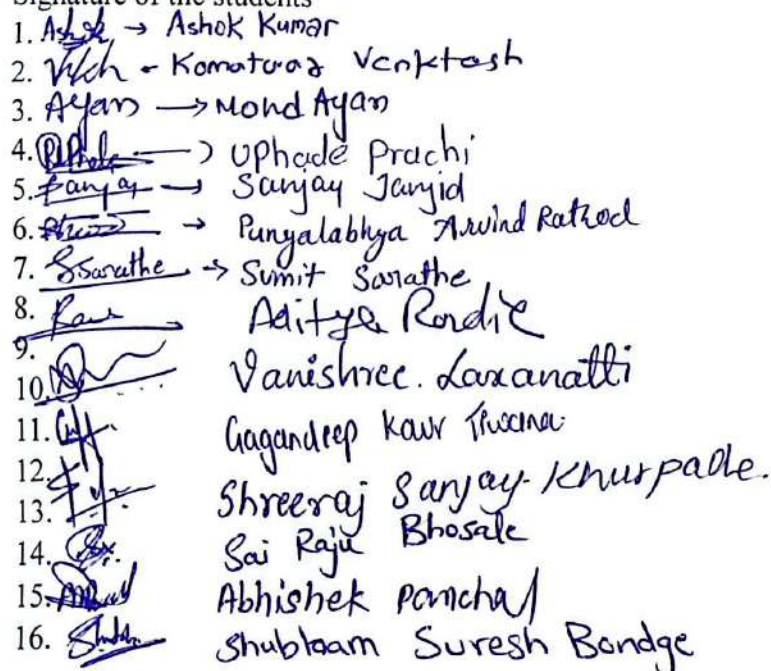 Signature of the students
1. Ashok → Ashok Kumar
2. - Komaturaz Venktesh
3. Ayan → Mohd Ayan
4. → Uphade Prachi
5. Sanjay → Sanjay Janjid
6. → Punyalabhya Arvind Rathod
7. SSarathe → Sumit Sarathe
8. Aditya
9.
10. Vanishree. Laxanatti
11. Gagandeep Kaur
12.
13. Shreeraj Sanjay Khurpade.
14. Sai Raju Bhosale
15. Abhishek Panchal
16. Shubham Suresh Bondge